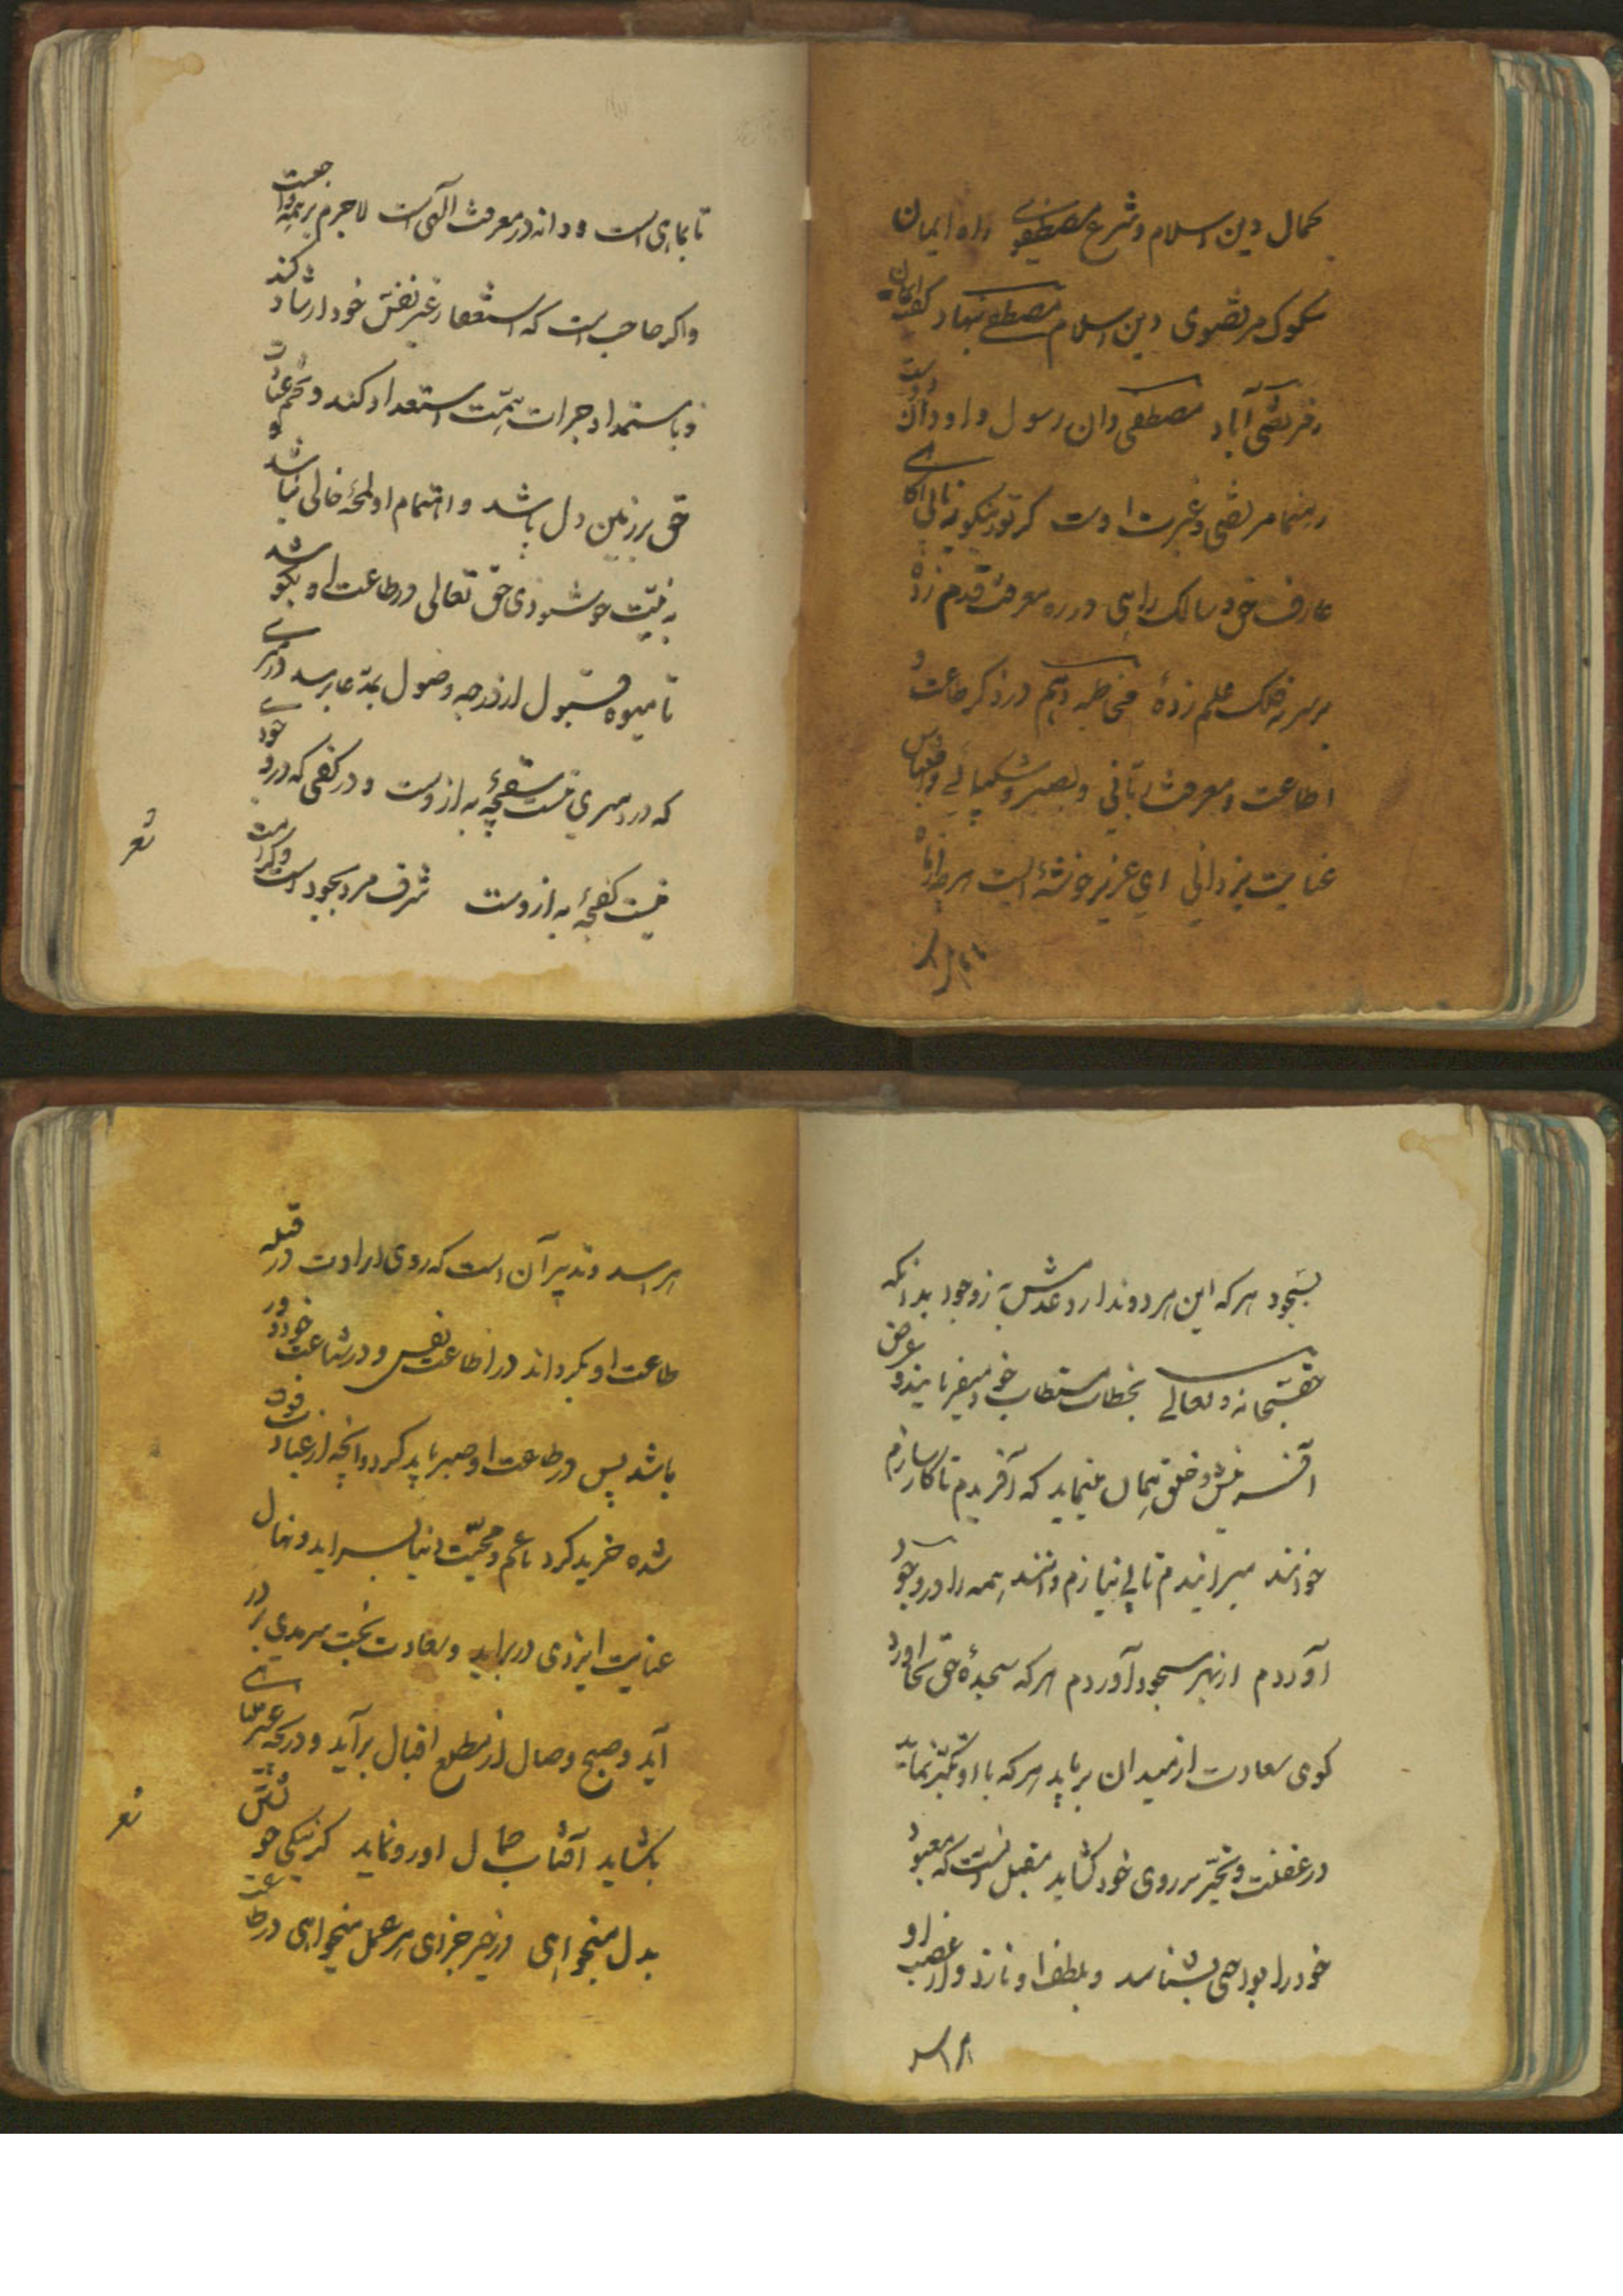 کمال دین اسلام و شرع مصطفوی راه ایمان
سکوک مرتضوی دین اسلام مصطفی بنهاد کفت ایمان
مرتضی آباد مصطفی دان رسول و او را دان دوست
رهنما مرتضی و غیرت اوست کر تو نیکو
عارف حق و سالک راهی در ره معرفت قدم زدهٔ
بر سر نه فلک علم زدهٔ مخاطبه دهم در ذکر طاعت و
اطاعت و معرفت ربانی و بصبر و شکیبائی
عنایت یزدانی ای عزیز خوشهٔ است هر دانهٔ
تا بماهی است و دانه در معرفت الهی است لاجرم بر همه واجبست
واکر صاحب است که استغفار غیر نفس خود ارشاد کند
و باستمداد جرات همت استعداد کند و تخم عبادت
حق بر زمین دل باشد و اهتمام او لمحهٔ خالی نباشد
به نیت خوشنودی حق تعالی در طاعت او بکوشد
تا میوه قبول از درجه وصول بمدعا رسد
که در سری نیست سقچهٔ به ازوست و در کفی که درو جودی
نیست کفچهٔ به ازوست شرف مرد بجود است و کرامت
بسجود هر که این هر دو ندارد عدمش به ز وجود بدانکه
حق سبحانه و تعالی بخطاب مستطاب خود میفرمایند و عرض
آفرینش و خلق بیان مینماید که آفریدم تا کار سازم
خوانند میرانیدم تا بی نیازم دانند همه را در وجود
آوردم از بهر سجود آوردم هر که سجدهٔ حق بجا آورد
کوی سعادت از میدان برباید هر که با او تکبر نماید
در غفلت و تحیر بر روی خود کشاید مقبل آنست که معبود
خود را بواحدی بشناسد و بلطف او نازد و از غضب او
هراسد
هراسد و تدبیر آن است که روی ارادت در قبله
طاعت او بکرداند در اطاعت نفس و در شناعت خود دور
باشد پس در طاعت او صبر باید کرد و آنچه از عبادت فوت
شده خرید کرد تا غم و محبت دنیا بسر آید و نهال
عنایت ایزدی در بر آید و سعادت بخت سرمدی از در
آید و صبح وصال از مطلع اقبال برآید و دریچه
بکشاید آفتاب جمال او رو نماید کر نیکی خویش
بدل میخواهی وز خیر جزای هر عمل میخواهی در طاعت